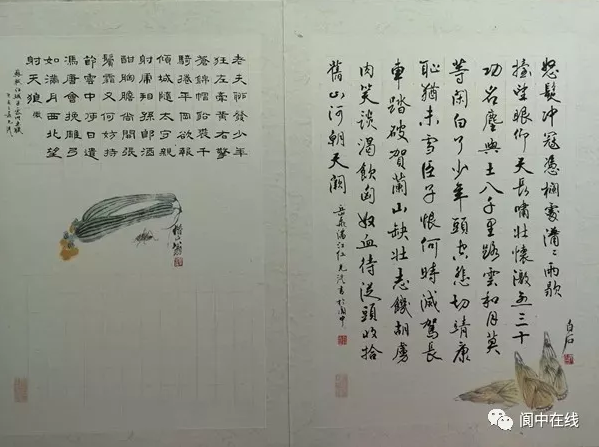 怒髮冲冠憑欄處瀟〻雨歇
擡望眼仰天長嘯壯懷激烈三十
功名塵與土八千里路雲和月莫
等閑白了少年頭空悲切靖康
恥猶未雪臣子恨何時滅駕長
車踏破賀蘭山缺壯志饑胡虜
肉笑談渴飲匈奴血待從頭收拾
舊山河朝天闕
岳飛滿江红 元洪書於阆中
白石
老夫聊發少年
狂左牽黃右擎
蒼錦帽貂裘千
騎捲平岡欲報
傾城隨太守親
射虎看孫郎酒
酣胸膽尚開張
鬢霜又何妨持
節雲中何日遣
馮唐會挽雕弓
如滿月西北望
射天狼
蘇軾江城子密州出獵
阆中在线